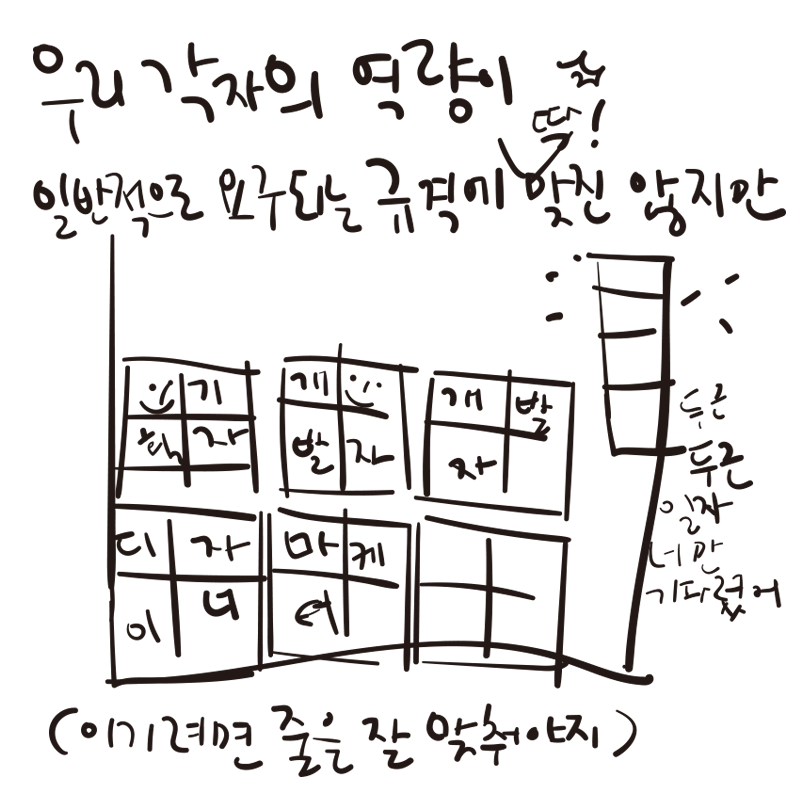 우리 각자의 역량이
딱!
일반적으로 요구되는 규격에 맞진 않지만
기
획 자
개
발 자
개 발
자
디 자
이 너
마 케
터
두근
두근
일자
너만
기다렸어
(이기려면 줄을 잘 맞춰야지)